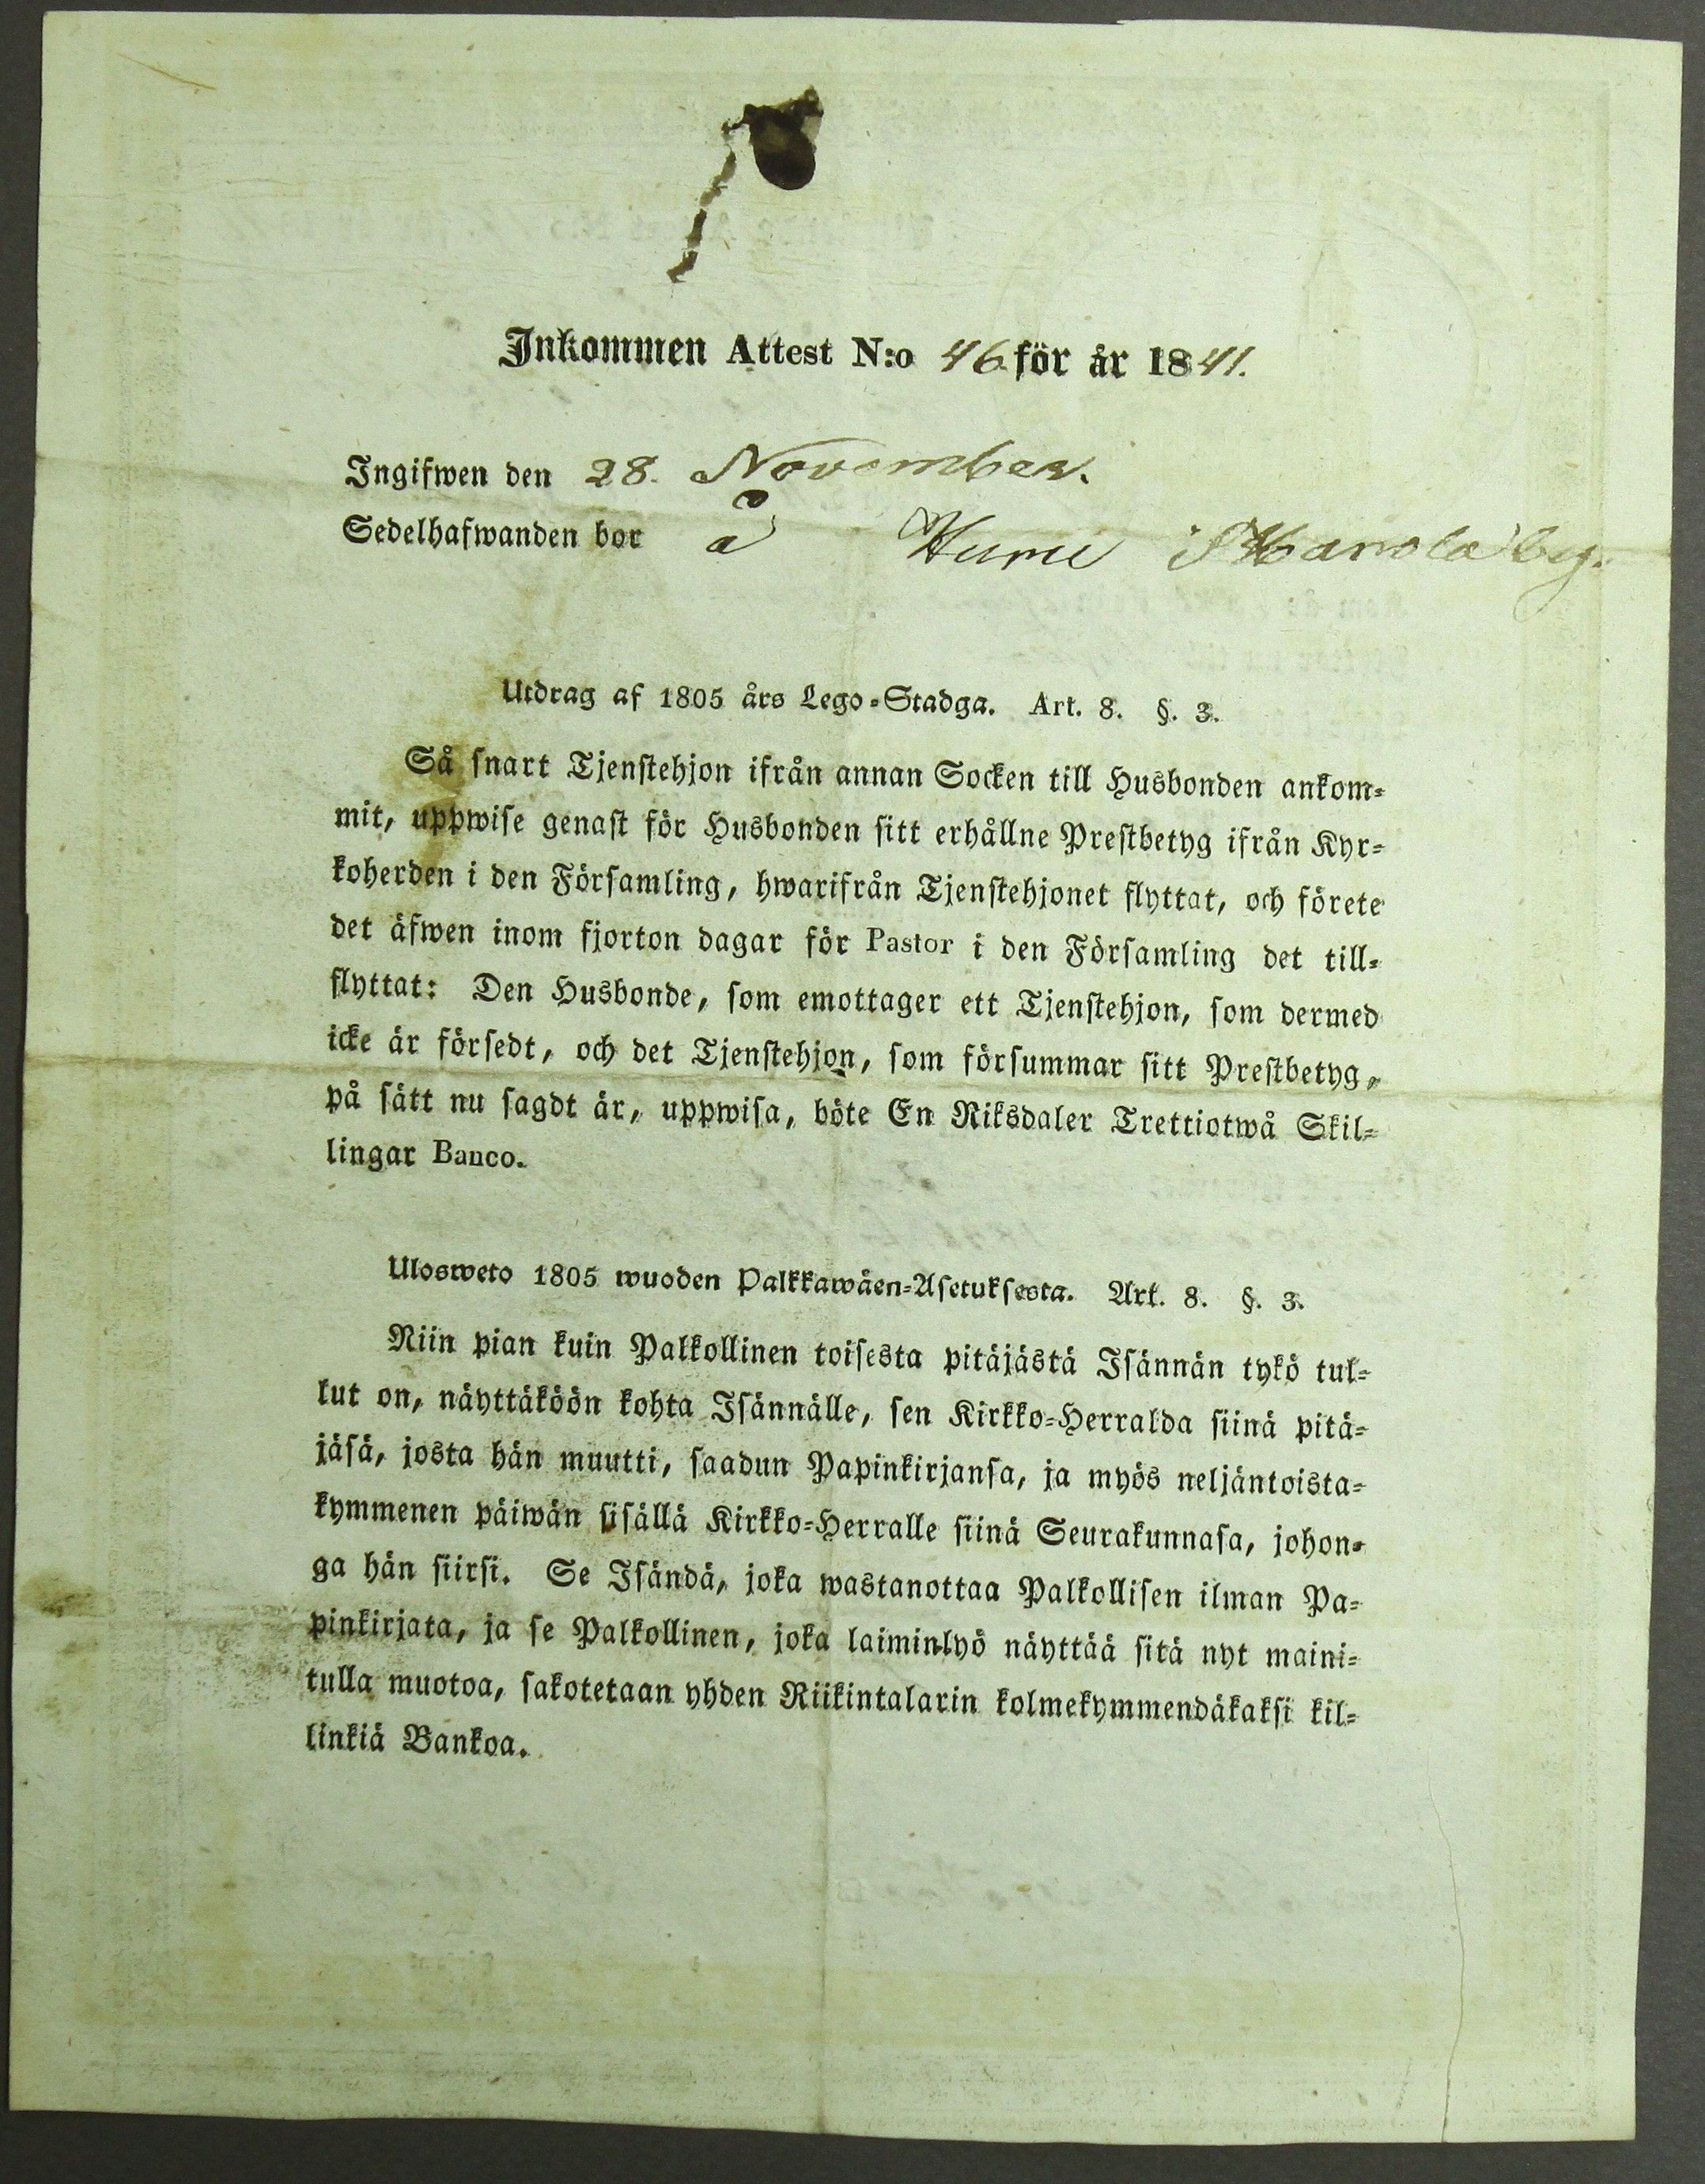 Inkommen Attest N:o 46 för år 1841.
Ingifwen den 28. November.
Sedelhafwanden bor å Huru i Harola by.
Utdrag af 1805 års Lego-Stadga. Art. 8. §. 3.
Så snart Tjenstehjon ifrån annan Socken till Husbonden ankom-
mit, uppwise genast för Husbonden sitt erhållne Prestbetyg ifrån Kyr-
koherden i den Församling, hwarifrån Tjenstehjonet flyttat, och förete
det äfwen inom fjorton dagar för Pastor i den Församling det till-
flyttat: Den Husbonde, som emottager ett Tjenstehjon, som dermed
icke är försedt, och det Tjenstehjon, som försummar sitt Prestbetyg,
på sätt nu sagdt är, uppwisa, böte En Riksdaler Trettiotwå Skil-
lingar Banco.
Ulosweto 1805 wuoden Palkkawäen-Asetuksesta. Art. 8. §. 3.
Niin pian kuin Palkollinen toisesta pitäjästä Isännän tykö tul-
lut on, näyttäköön kohta Isännälle, sen Kirkko-Herralda siinä pitä-
jäsä, josta hän muutti, saadun Papinkirjansa, ja myös neljäntoista-
kymmenen päiwän sisällä Kirkko-Herralle siinä Seurakunnasa, johon-
ga hän siirsi. Se Isändä, joka wastanottaa Palkollisen ilman Pa-
pinkirjata, ja se Palkollinen, joka laiminlyö näyttää sitä nyt maini-
tulla muotoa, sakotetaan yhden Riikintalarin kolmekymmendäkaksi kil-
linkiä Bankoa.